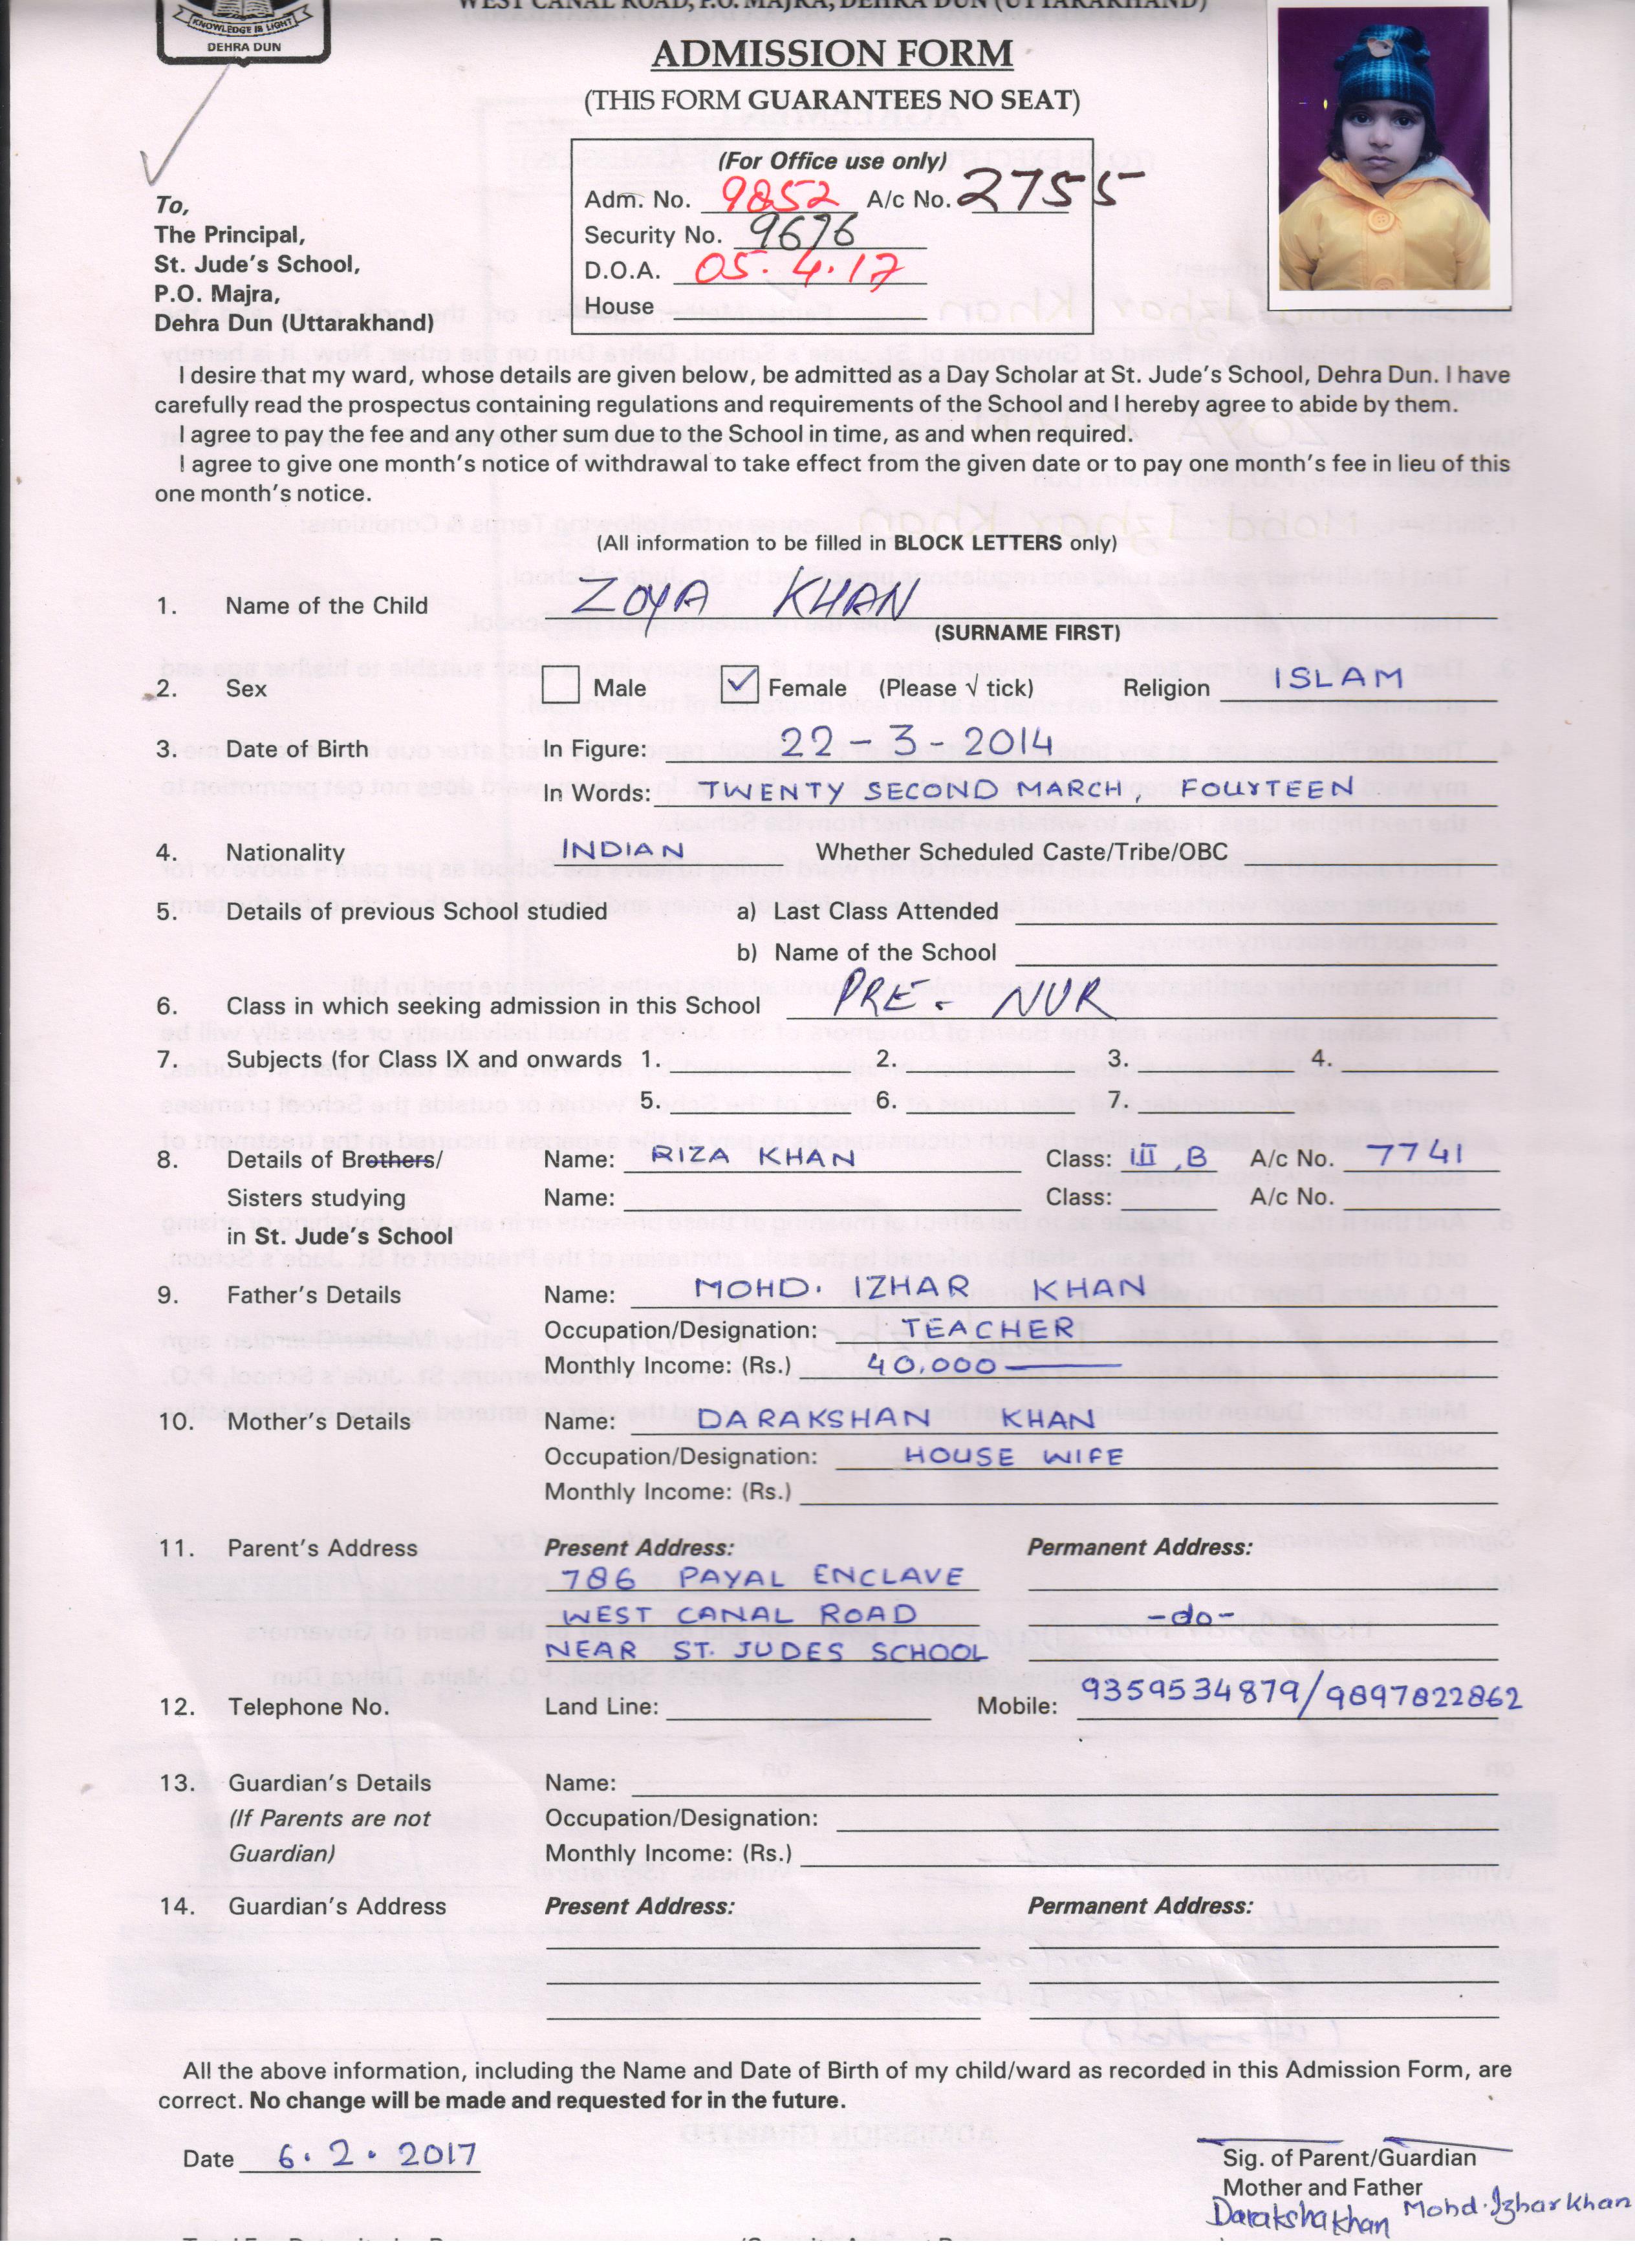 WEST CANAL ROAD, P.O. MAJRA, DEHRA DUN (UTTARAKHAND)
KNOWLEDGE IS LIGHT
DEHRA DUN
ADMISSION FORM
(THIS FORM GUARANTEES NO SEAT)
(For Office use only)
Adm. No. 9852 A/c No. 2755
Security No. 9676
D.O.A. 05.4.17
House
To,
The Principal,
St. Jude's School,
P.O. Majra,
Dehra Dun (Uttarakhand)
I desire that my ward, whose details are given below, be admitted as a Day Scholar at St. Jude's School, Dehra Dun. I have
carefully read the prospectus containing regulations and requirements of the School and I hereby agree to abide by them.
I agree to pay the fee and any other sum due to the School in time, as and when required.
I agree to give one month's notice of withdrawal to take effect from the given date or to pay one month's fee in lieu of this
one month's notice.
(All information to be filled in BLOCK LETTERS only)
1. Name of the Child ZOYA KHAN
(SURNAME FIRST)
2. Sex Male ✓ Female (Please √ tick) Religion ISLAM
3. Date of Birth In Figure: 22-3-2014
In Words: TWENTY SECOND MARCH, FOURTEEN
4. Nationality INDIAN Whether Scheduled Caste/Tribe/OBC
5. Details of previous School studied a) Last Class Attended
b) Name of the School
6. Class in which seeking admission in this School PRE - NUR
7. Subjects (for Class IX and onwards 1. 2. 3. 4.
5. 6. 7.
8. Details of Brothers/ Name: RIZA KHAN Class: III, B A/c No. 7741
Sisters studying Name: Class: A/c No.
in St. Jude's School
9. Father's Details Name: MOHD. IZHAR KHAN
Occupation/Designation: TEACHER
Monthly Income: (Rs.) 40,000
10. Mother's Details Name: DARAKSHAN KHAN
Occupation/Designation: HOUSE WIFE
Monthly Income: (Rs.)
11. Parent's Address Present Address: Permanent Address:
786 PAYAL ENCLAVE
WEST CANAL ROAD -do-
NEAR ST. JUDES SCHOOL
12. Telephone No. Land Line: Mobile: 9359534879/9897822862
13. Guardian's Details Name:
(If Parents are not Occupation/Designation:
Guardian) Monthly Income: (Rs.)
14. Guardian's Address Present Address: Permanent Address:
All the above information, including the Name and Date of Birth of my child/ward as recorded in this Admission Form, are
correct. No change will be made and requested for in the future.
Date 6.2.2017
Sig. of Parent/Guardian
Mother and Father
Darakshakhan Mohd. Izhar Khan